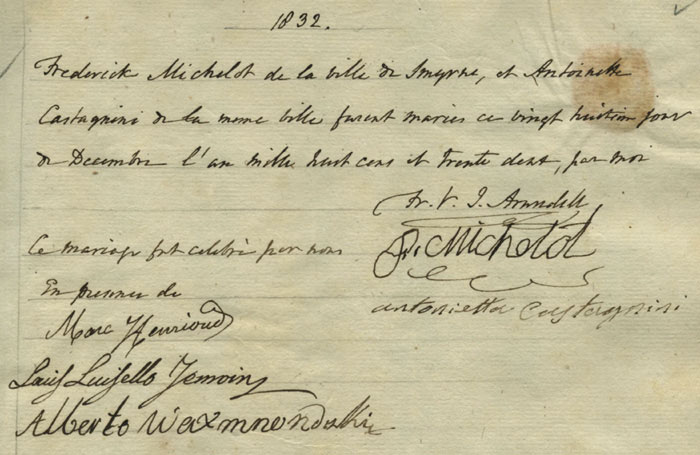 1832.
Frederick Michelot de la ville de Smyrne, et Antoinette
Castagnini de la meme ville furent maries ce vingt huitiem jour
de Decembre l'an mille huit cens et trente deux, par moi
Fr. V. J. Arundell,
Ce mariage fut celebré par nous
F. Michelot
En presence de
antonietta Castagnini
Marc Henrioud
Louis Luisello Temoin
Alberto